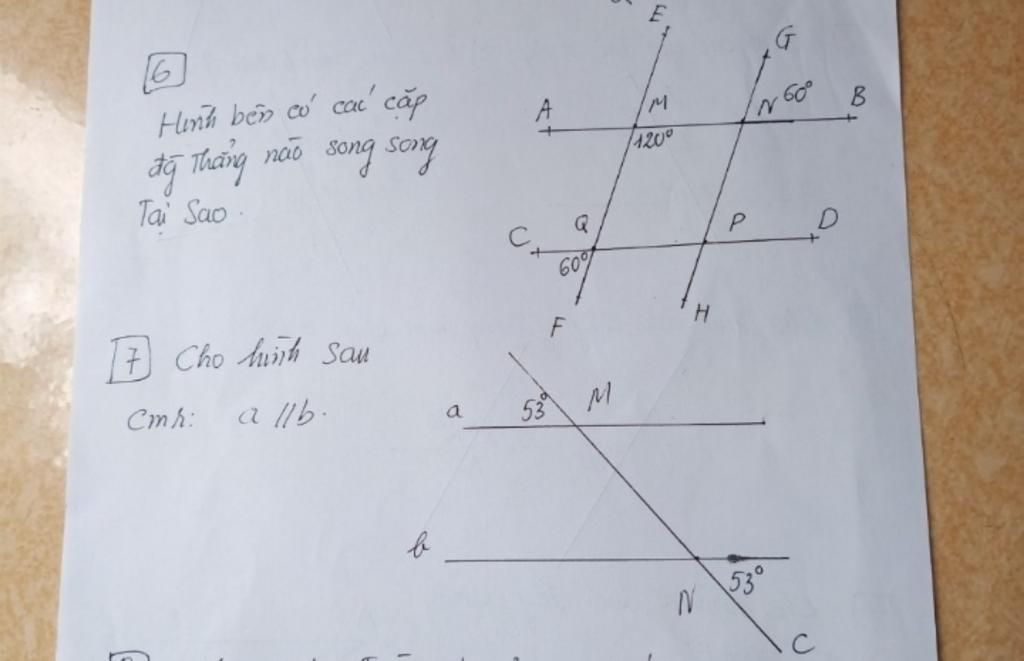 6
Hình bên có các cặp
đg Thẳng nào song song
Tại Sao.
E
G
A
M
N
60°
B
120°
C
Q
P
D
60°
F
H
7 Cho hình sau
Cmr: a // b.
a
53°
M
b
N
53°
C